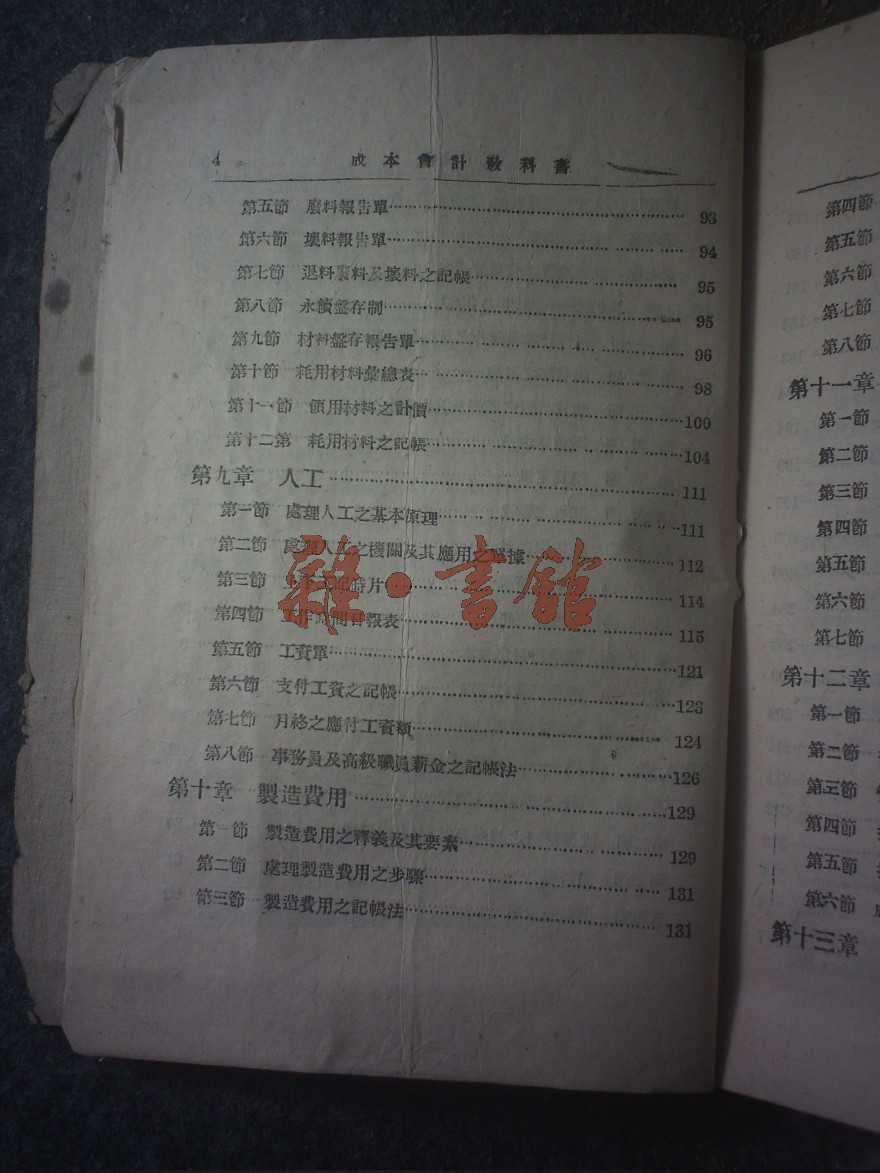 4 成本會計教科書
第五節 廢料報告單 93
第六節 壞料報告單 94
第七節 退料廢料及壞料之記帳 95
第八節 永續盤存制 95
第九節 材料盤存報告單 96
第十節 耗用材料彙總表 98
第十一節 領用材料之計價 100
第十二第 耗用材料之記帳 104
第九章 人工 111
第一節 處理人工之基本原理 111
第二節 處理人工之機關及其應用之單據 112
第三節 記時片 114
第四節 工作時間日報表 115
第五節 工資單 121
第六節 支付工資之記帳 123
第七節 月終之應付工資額 124
第八節 事務員及高級職員薪金之記帳法 126
第十章 製造費用 129
第一節 製造費用之釋義及其要素 129
第二節 處理製造費用之步驟 131
第三節 製造費用之記帳法 131
雜·書館
第四節
第五節
第六節
第七節
第八節
第十一章
第一節
第二節
第三節
第四節
第五節
第六節
第七節
第十二章
第一節
第二節
第三節
第四節
第五節
第六節
第十三章